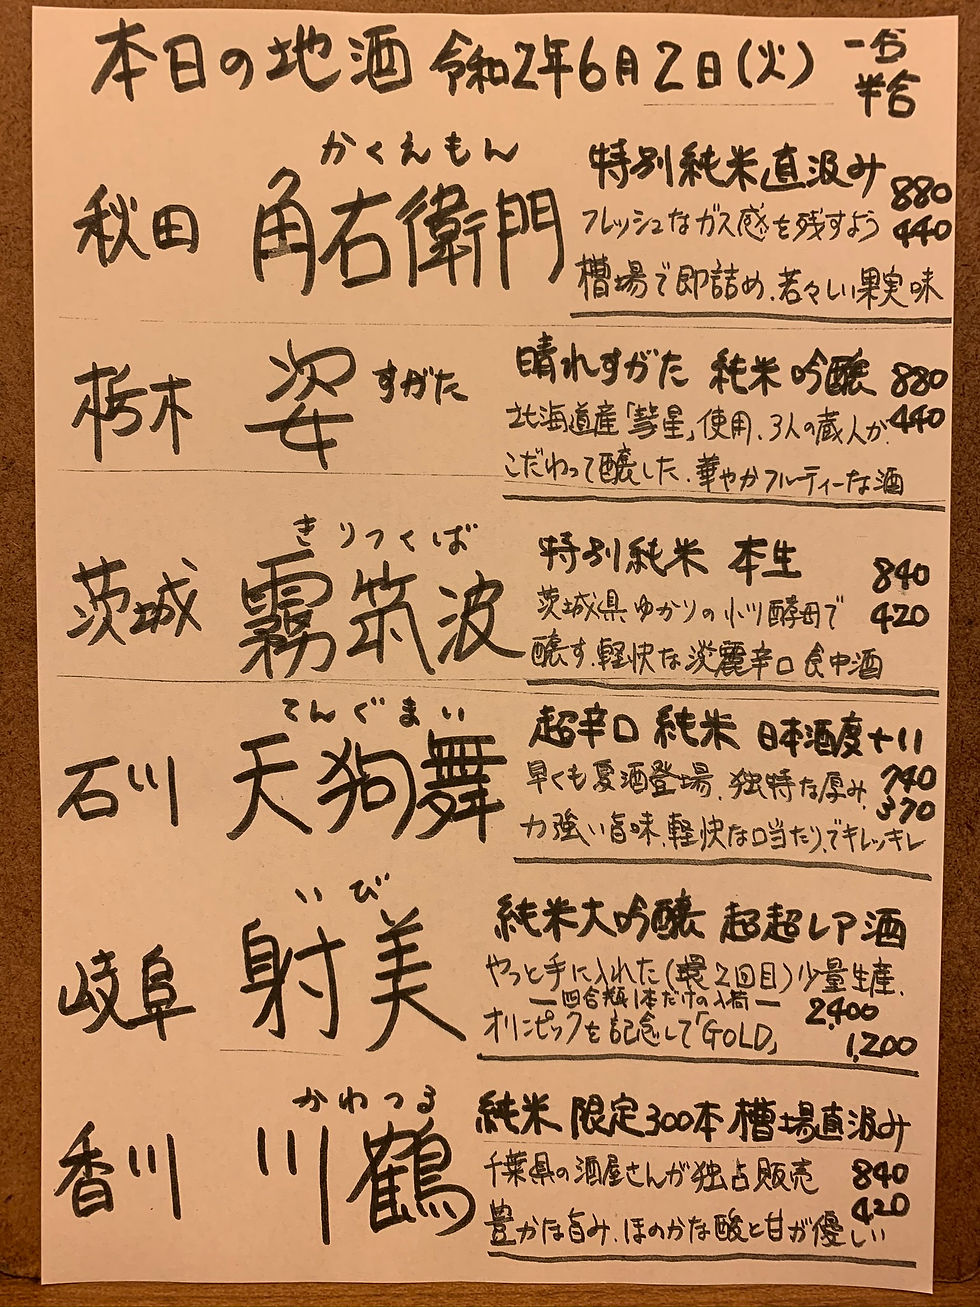 本日の地酒 令和2年6月2日(火) 一合
半合
かくえもん
秋田 角右衛門
特別純米直汲み 880
フレッシュなガス感を残すよう 440
槽場で即詰め、若々しい果実味
栃木 姿 すがた
晴れすがた 純米吟醸 880
北海道産「彗星」使用、3人の蔵人が 440
こだわって醸した、華やかフルーティーな酒
きりつくば
茨城 霧筑波
特別純米 本生 840
茨城県ゆかりの小川酵母で 420
醸す、軽快な淡麗辛口食中酒
てんぐまい
石川 天狗舞
超辛口 純米 日本酒度+11
早くも夏酒登場、独特な厚み、 740
力強い旨味、軽快な口当たり、でキレッキレ 370
いび
岐阜 射美
純米大吟醸 超超レア酒
やっと手に入れた(2回目)少量生産、
四合瓶1本だけの入荷 2,400
オリンピックを記念して「GOLD」 1,200
かわつる
香川 川鶴
純米 限定300本 槽場直汲み
千葉県の酒屋さんが独占販売 840
豊かな旨み、ほのかな酸と甘が優しい 420